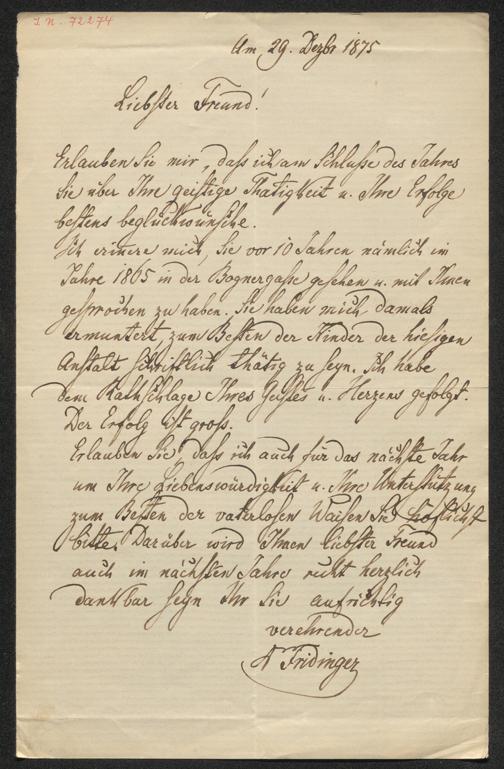 I. N. 72274
Am 29. Dezbr 1875
Liebster Freund!
Erlauben Sie mir, daß ich am Schluße des Jahres
Sie über Ihre geistige Thätigkeit u. Ihre Erfolge
bestens beglückwünsche.
Ich erinere mich, Sie vor 10 Jahren nämlich im
Jahre 1865 in der Bognergaße gesehen u. mit Ihnen
gesprochen zu haben. Sie haben mich damals
ermuntert, zum Besten der Kinder der hiesigen
Anstalt schriftlich thätig zu seyn. Ich habe
dem Rathschlage Ihres Geistes u. Herzens gefolgt.
Der Erfolg ist groß.
Erlauben Sie, daß ich auch für das nächste Jahr
um Ihre Liebenswürdigkeit u. Ihre Unterstützung
zum Besten der vaterlosen Waisen Sie höflichst
bitte. Darüber wird Ihnen liebster Freund
auch im nächsten Jahre recht herzlich
dankbar seyn Ihr Sie aufrichtig
verehrender
Fridinger